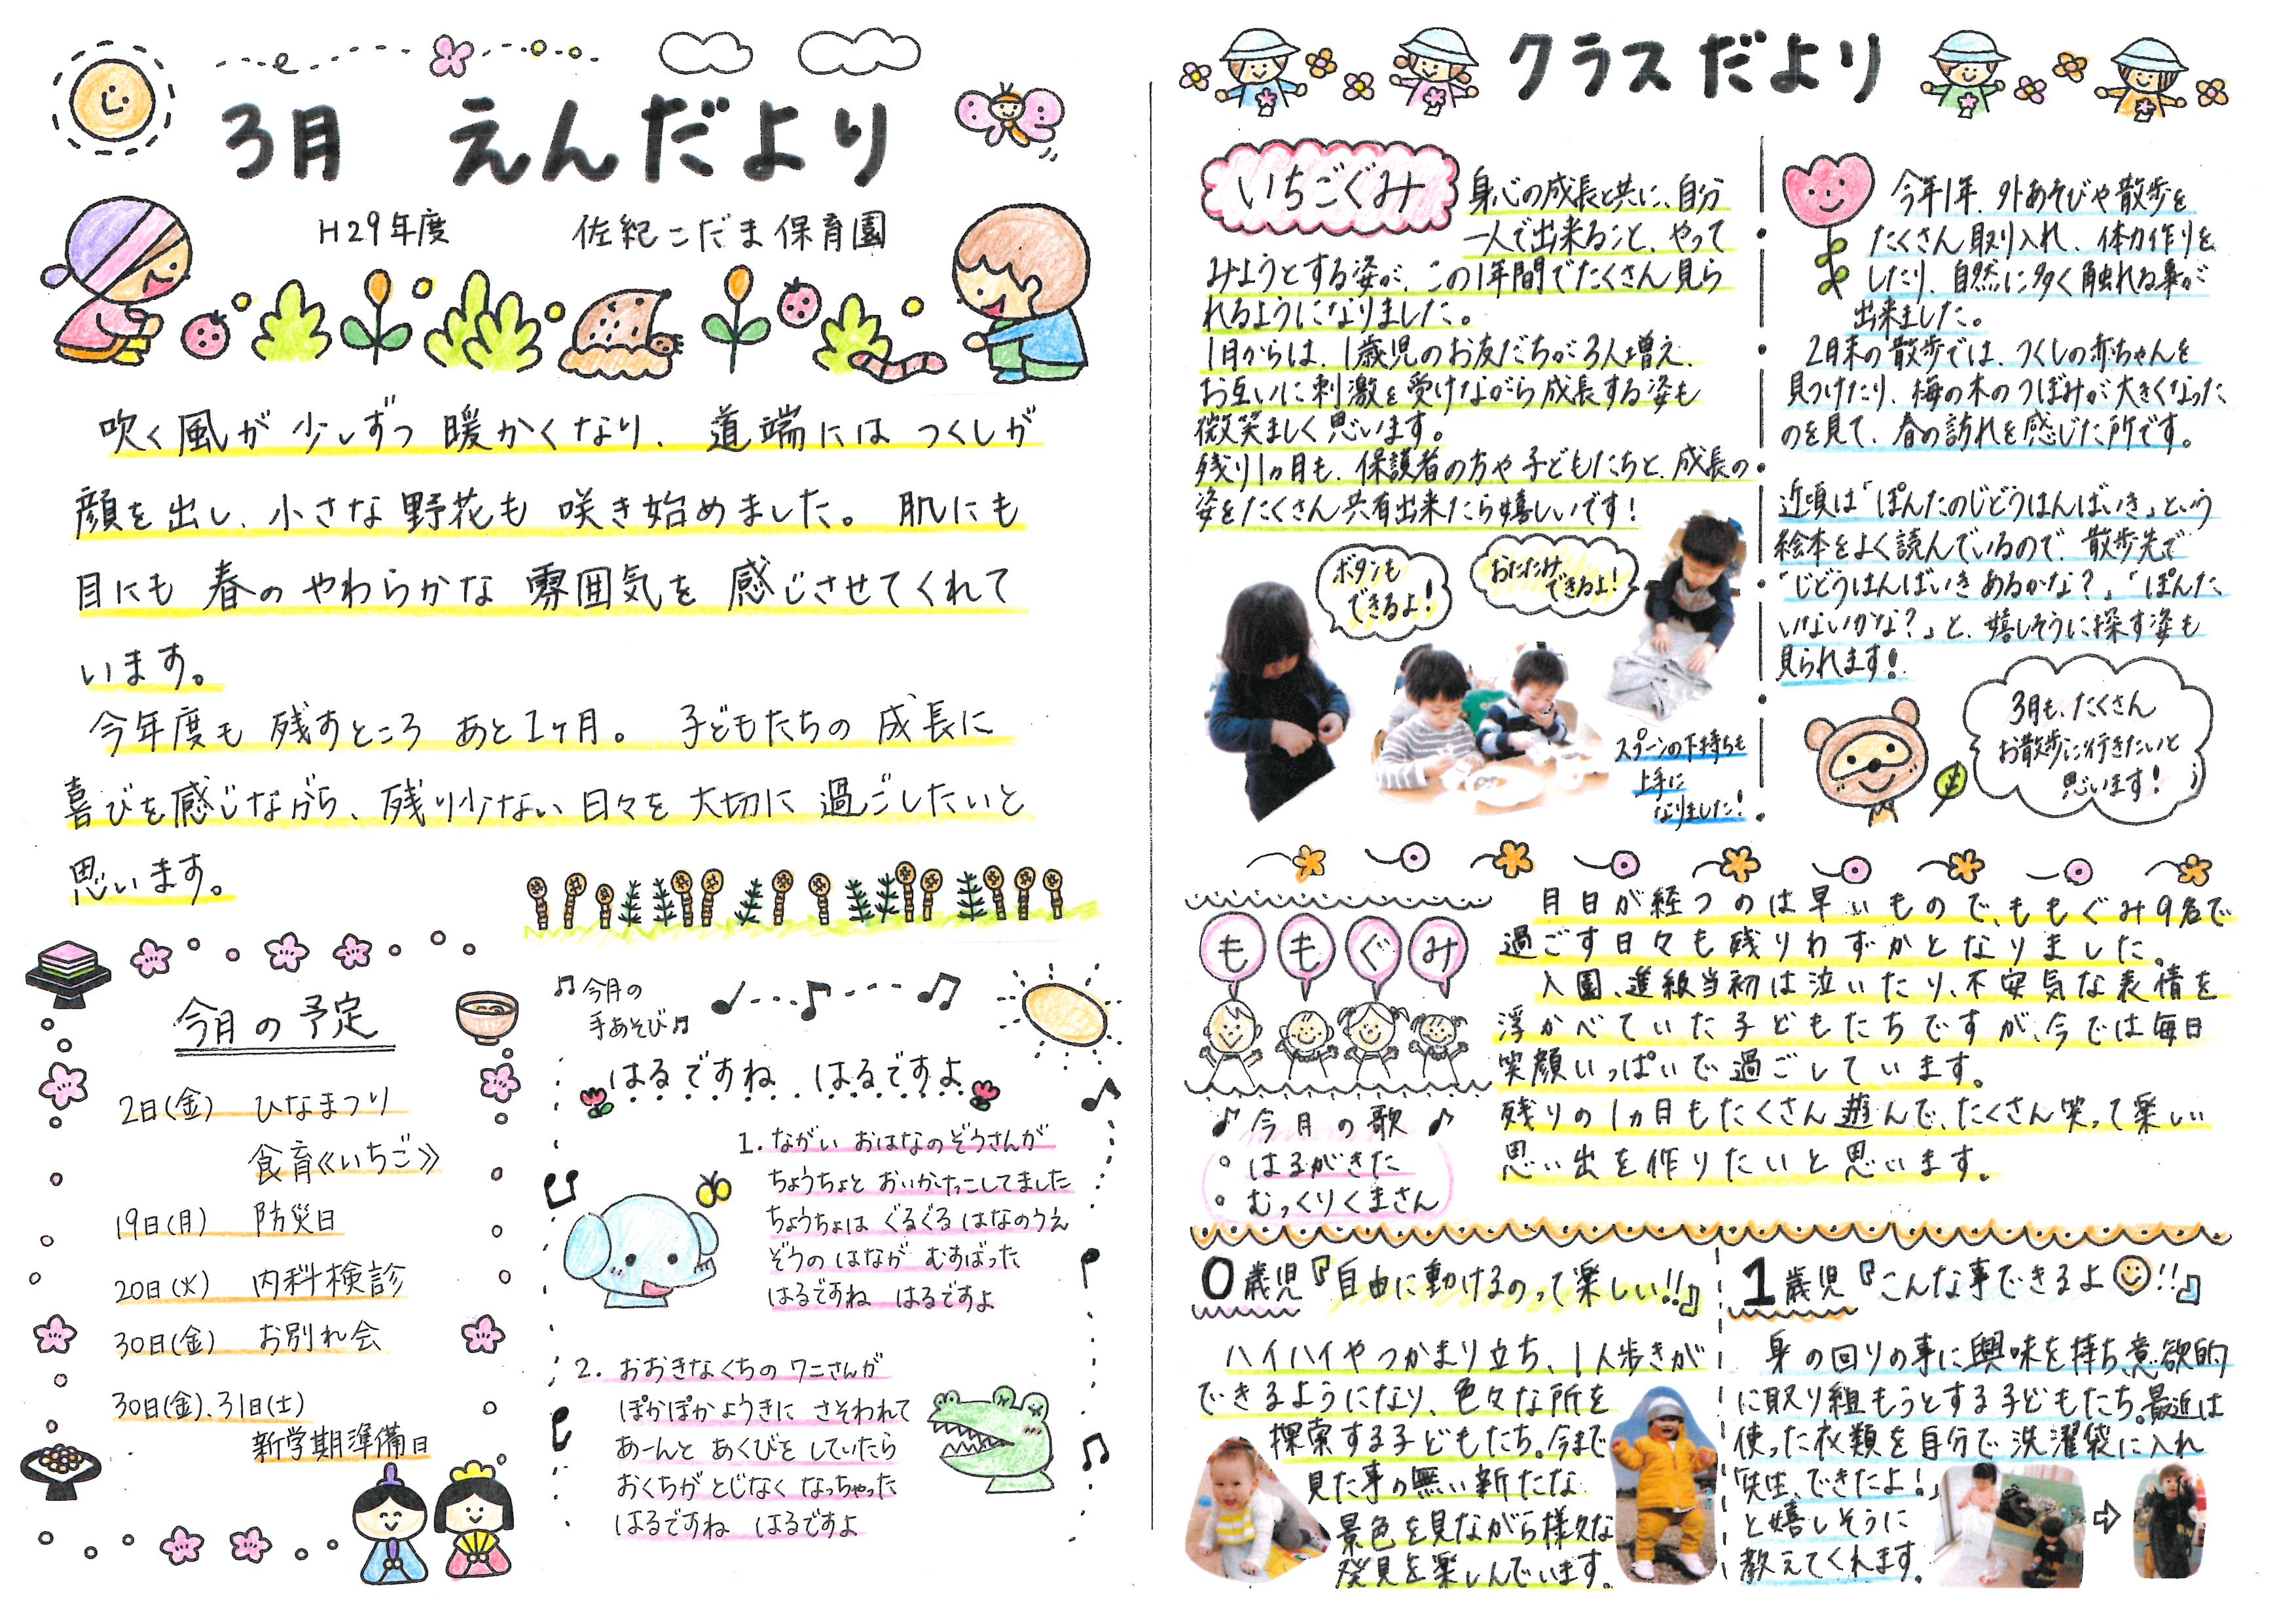 3月 えんだより
H29年度 佐紀こだま保育園
吹く風が少しずつ暖かくなり、道端にはつくしが
顔を出し、小さな野花も咲き始めました。肌にも
目にも春のやわらかな雰囲気を感じさせてくれて
います。
今年度も残すところあと1ヶ月。子どもたちの成長に
喜びを感じながら、残り少ない日々を大切に過ごしたいと
思います。
今月の予定
2日(金) ひなまつり
食育《いちご》
19日(月) 防災日
20日(火) 内科検診
30日(金) お別れ会
30日(金)、31日(土)
新学期準備日
♫今月の
手あそび♫
はるですね はるですよ
1. ながい おはなのぞうさんが
ちょうちょと おいかけっこしてました
ちょうちょは ぐるぐる はなのうえ
ぞうの はなが むすばった
はるですね はるですよ
2. おおきなくちの ワニさんが
ぽかぽか ようきに さそわれて
あーんと あくびを していたら
おくちが とじなく なっちゃった
はるですね はるですよ
クラスだより
いちごぐみ
身心の成長と共に、自分
一人で出来ること、やって
みようとする姿が、この1年間でたくさん見ら
れるようになりました。
1月からは、1歳児のお友だちが3人増え、
お互いに刺激を受けながら成長する姿も
微笑ましく思います。
残り1ヵ月も、保護者の方や子どもたちと、成長の
姿をたくさん共有出来たら嬉しいです!
ボタンも
できるよ!
おたたみ
できるよ!
スプーンの下持ちも
上手に
なりました!
今年1年、外あそびや散歩を
たくさん取り入れ、体力作りを
したり、自然に多く触れる事が
出来ました。
2月末の散歩では、つくしの赤ちゃんを
見つけたり、梅の木のつぼみが大きくなった
のを見て、春の訪れを感じた所です。
近頃は「ぽんたのじどうはんばいき」という
絵本をよく読んでいるので、散歩先で
「じどうはんばいきあるかな?」「ぽんた
いないかな?」と、嬉しそうに探す姿も
見られます!
3月も、たくさん
お散歩に行きたいと
思います!
ももぐみ
月日が経つのは早いもので、ももぐみ9名で
過ごす日々も残りわずかとなりました。
入園、進級当初は泣いたり、不安気な表情を
浮かべていた子どもたちですが、今では毎日
笑顔いっぱいで過ごしています。
残りの1ヵ月もたくさん遊んで、たくさん笑って楽しい
思い出を作りたいと思います。
♪今月の歌♪
・はるがきた
・むっくりくまさん
0歳児『自由に動けるのって楽しい!!』
ハイハイやつかまり立ち、1人歩きが
できるようになり、色々な所を
探索する子どもたち。今まで
見た事の無い新たな
景色を見ながら様々な
発見を楽しんでいます。
1歳児『こんな事できるよ!!』
身の回りの事に興味を持ち意欲的
に取り組もうとする子どもたち。最近は
使った衣類を自分で洗濯袋に入れ
「先生、できたよ!」
と嬉しそうに
教えてくれます。